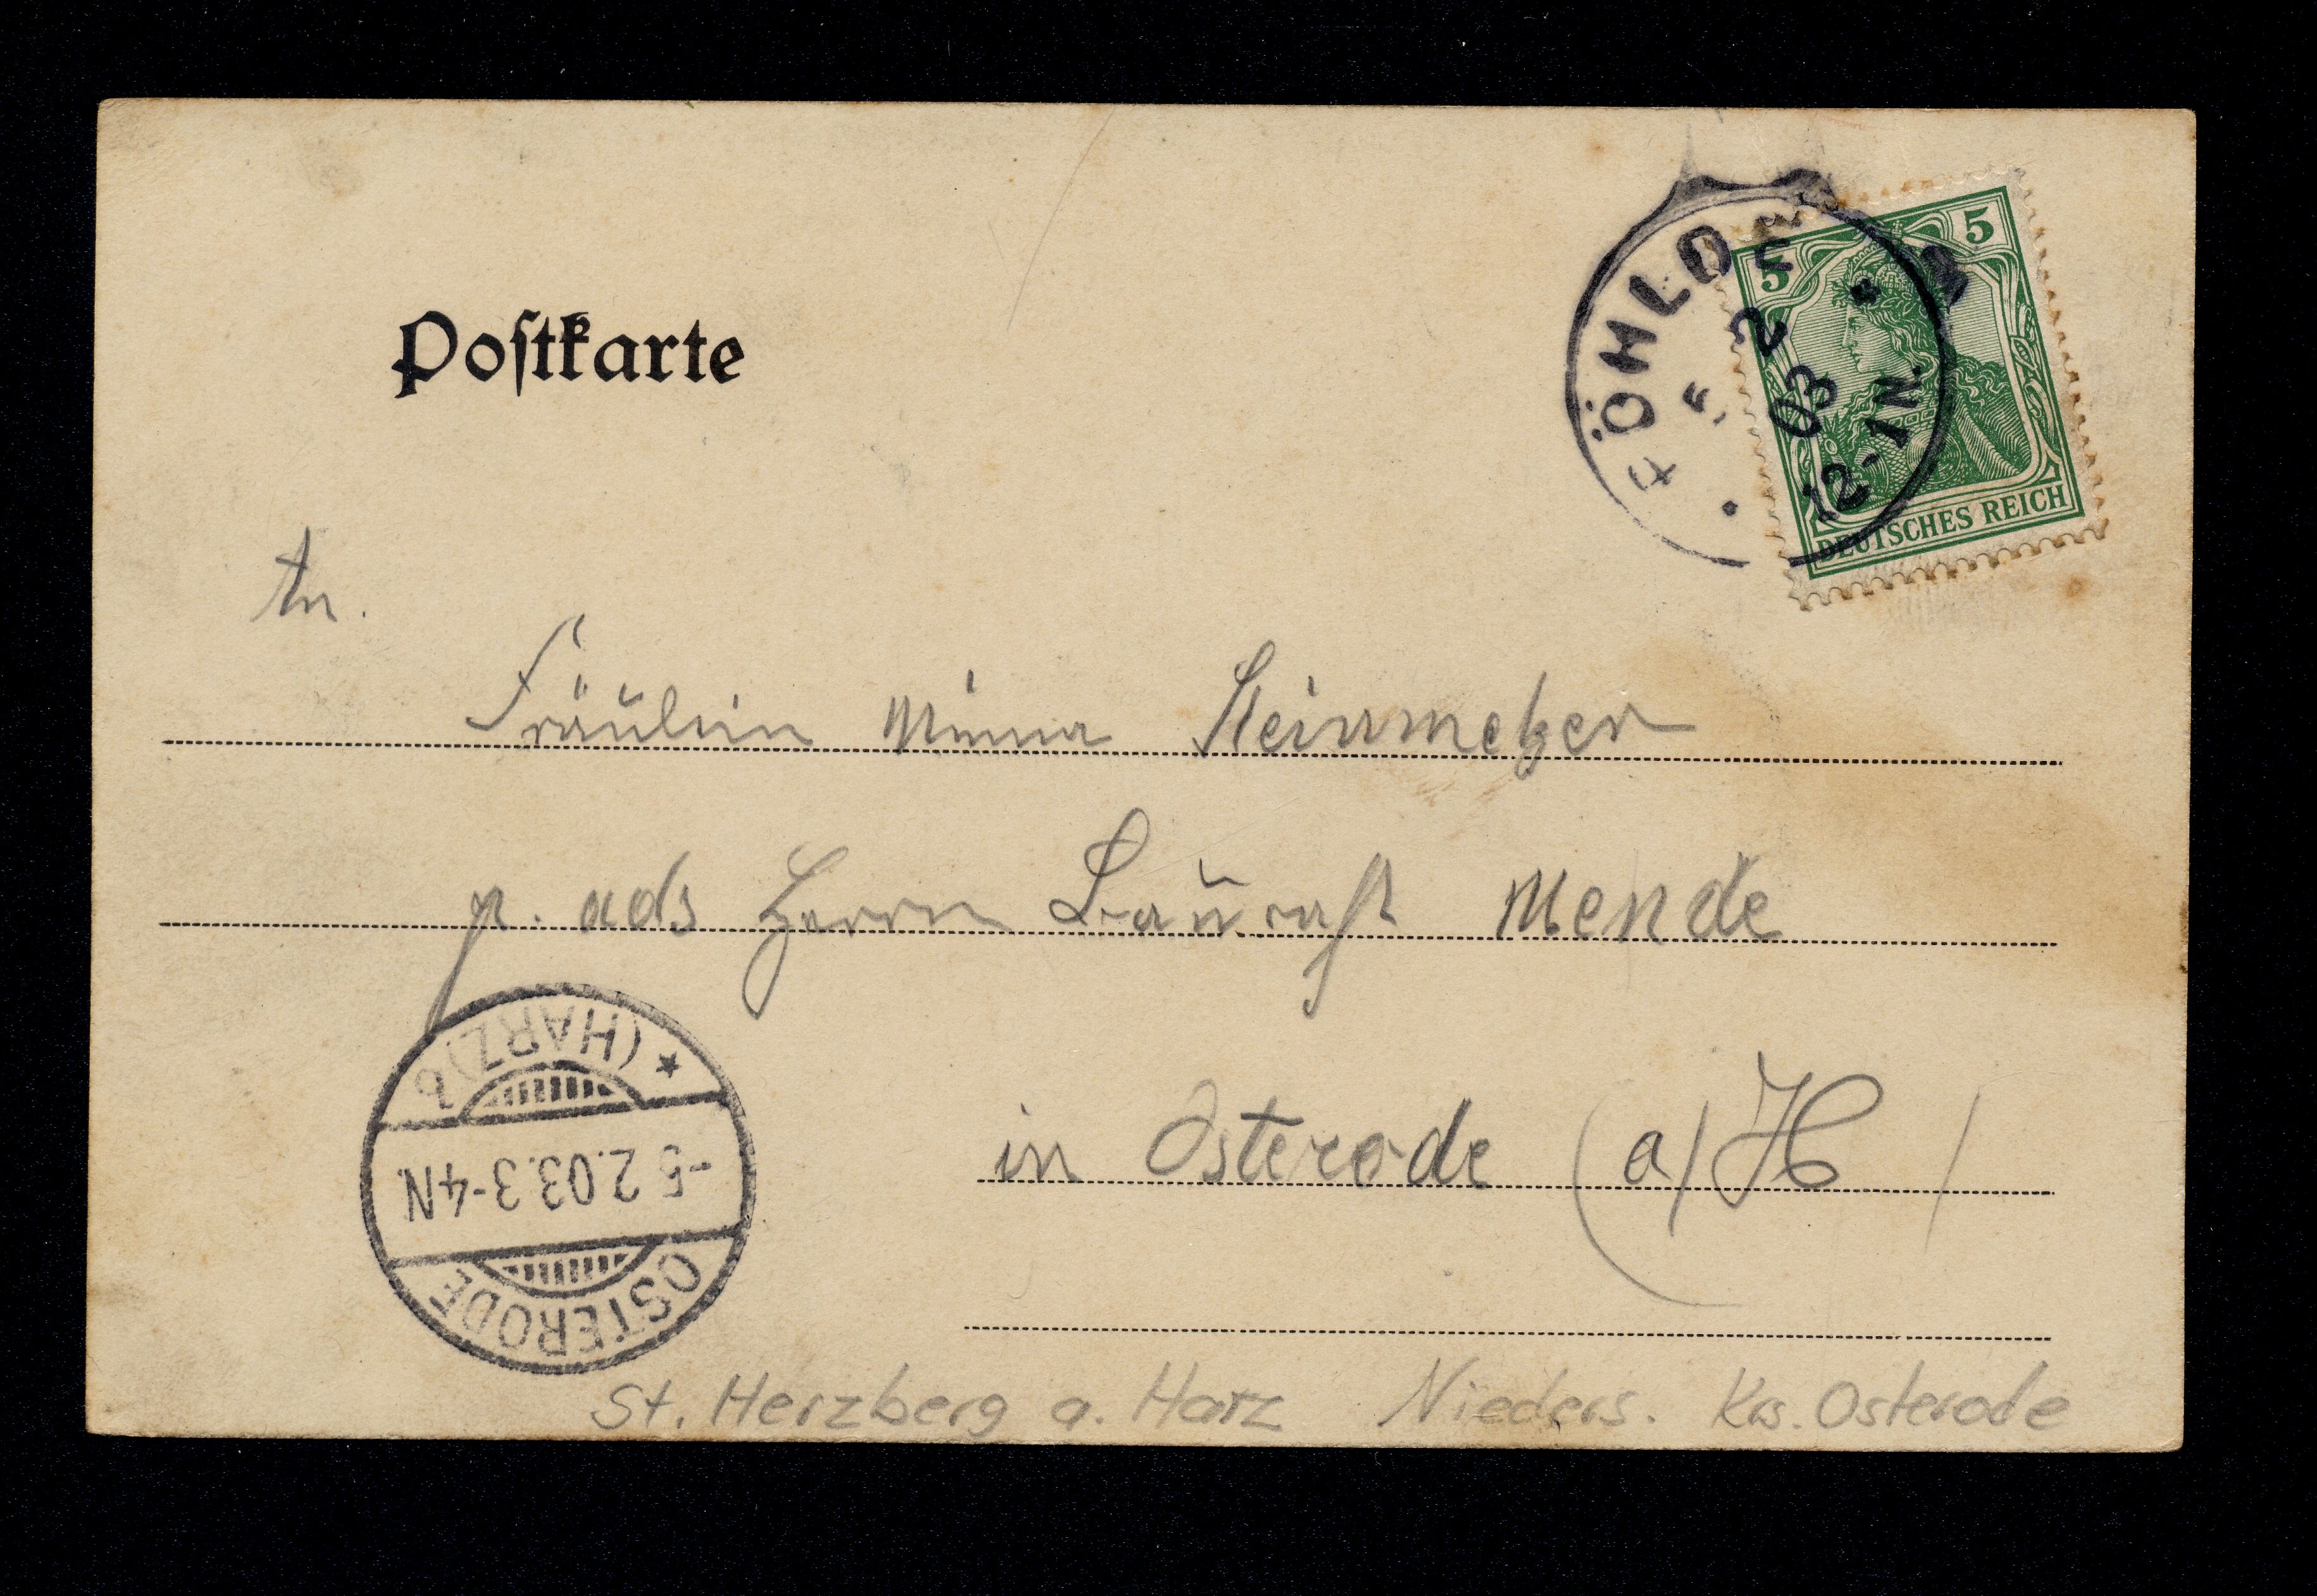 Postkarte
5 5
DEUTSCHES REICH
5 2
03
12-1N.
An.
Fräulein Minna Steinmetzer
p. ads Herrn Baurath Mende
in Osterode (a/H)
(HARZ) b
-5.2.03.3-4N.
OSTERODE
St. Herzberg a. Harz Nieders. Krs. Osterode